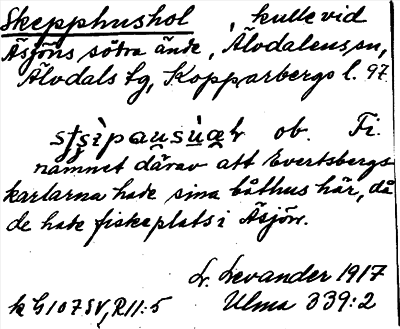 Skepphushol, kulle vid
Äsjöns södra ände, Älvdalens sn,
Älvdals tg, Kopparbergs l. 97
ob. Fi.
namnet därav att Evertsbergs-
karlarna hade sina båthus här, då
de hade fiskeplats i Äsjön.
L. Levander 1917
k G 107 SV, R11:5 Ulma 339:2